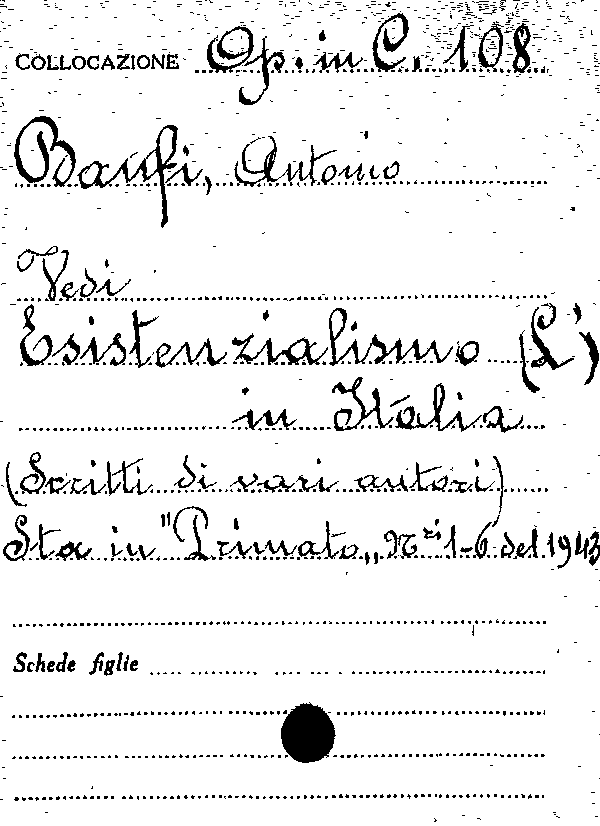 COLLOCAZIONE Op. in C. 108
Banfi, Antonio
Vedi
Esistenzialismo (L')
in Italia
(Scritti di vari autori)
Sta in "Primato„ Nri 1-6 del 1943
Schede figlie